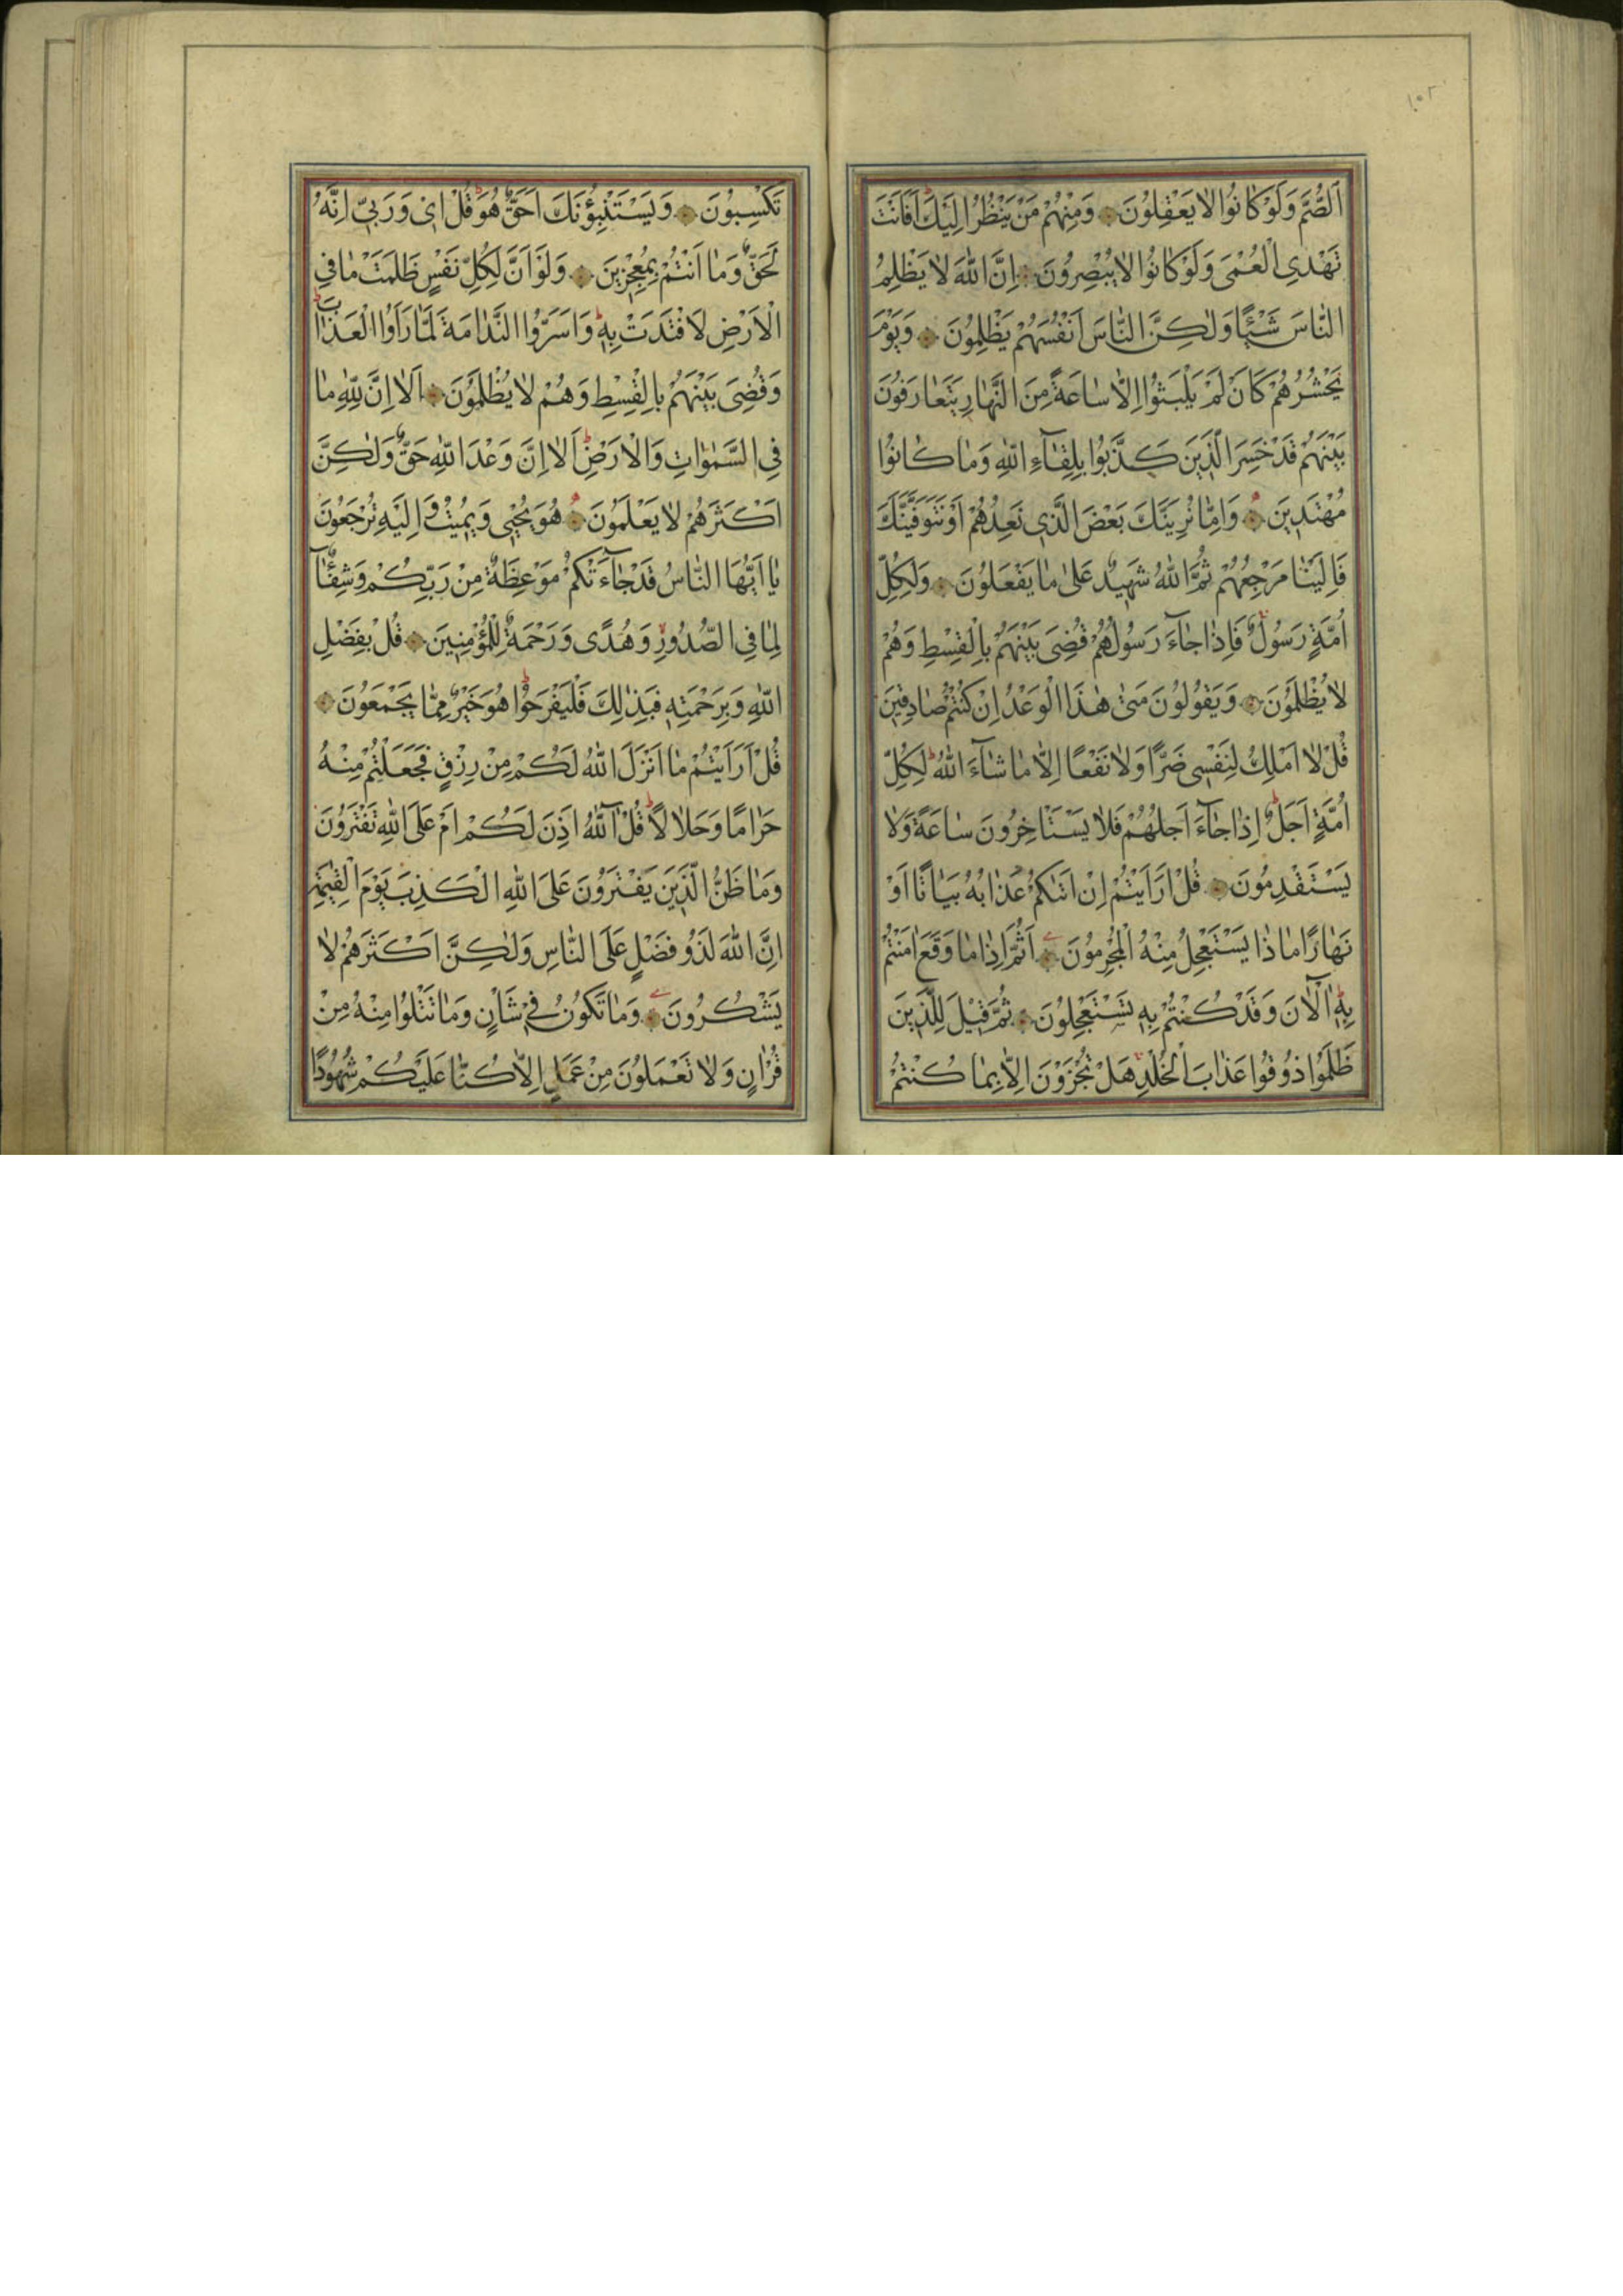 ١٠٢
اَلصُّمَّ وَلَوْ كَانُوا لَا يَعْقِلُونَ وَمِنْهُمْ مَنْ يَنْظُرُ اِلَيْكَ اَفَاَنْتَ
تَهْدِى الْعُمْىَ وَلَوْ كَانُوا لَا يُبْصِرُونَ اِنَّ اللّٰهَ لَا يَظْلِمُ
النَّاسَ شَيْئًا وَلٰكِنَّ النَّاسَ اَنْفُسَهُمْ يَظْلِمُونَ وَيَوْمَ
يَحْشُرُهُمْ كَاَنْ لَمْ يَلْبَثُوا اِلَّا سَاعَةً مِنَ النَّهَارِ يَتَعَارَفُونَ
بَيْنَهُمْ قَدْ خَسِرَ الَّذِينَ كَذَّبُوا بِلِقَاءِ اللّٰهِ وَمَا كَانُوا
مُهْتَدِينَ وَاِمَّا نُرِيَنَّكَ بَعْضَ الَّذِى نَعِدُهُمْ اَوْ نَتَوَفَّيَنَّكَ
فَاِلَيْنَا مَرْجِعُهُمْ ثُمَّ اللّٰهُ شَهِيدٌ عَلٰى مَا يَفْعَلُونَ وَلِكُلِّ
اُمَّةٍ رَسُولٌ فَاِذَا جَاءَ رَسُولُهُمْ قُضِىَ بَيْنَهُمْ بِالْقِسْطِ وَهُمْ
لَا يُظْلَمُونَ وَيَقُولُونَ مَتٰى هٰذَا الْوَعْدُ اِنْ كُنْتُمْ صَادِقِينَ
قُلْ لَا اَمْلِكُ لِنَفْسِى ضَرًّا وَلَا نَفْعًا اِلَّا مَا شَاءَ اللّٰهُ لِكُلِّ
اُمَّةٍ اَجَلٌ اِذَا جَاءَ اَجَلُهُمْ فَلَا يَسْتَاْخِرُونَ سَاعَةً وَلَا
يَسْتَقْدِمُونَ قُلْ اَرَاَيْتُمْ اِنْ اَتٰىكُمْ عَذَابُهُ بَيَاتًا اَوْ
نَهَارًا مَاذَا يَسْتَعْجِلُ مِنْهُ الْمُجْرِمُونَ اَثُمَّ اِذَا مَا وَقَعَ اٰمَنْتُمْ
بِهِ آلْاٰنَ وَقَدْ كُنْتُمْ بِهِ تَسْتَعْجِلُونَ ثُمَّ قِيلَ لِلَّذِينَ
ظَلَمُوا ذُوقُوا عَذَابَ الْخُلْدِ هَلْ تُجْزَوْنَ اِلَّا بِمَا كُنْتُمْ
تَكْسِبُونَ وَيَسْتَنْبِؤُنَكَ اَحَقٌّ هُوَ قُلْ اِى وَرَبِّى اِنَّهُ
لَحَقٌّ وَمَا اَنْتُمْ بِمُعْجِزِينَ وَلَوْ اَنَّ لِكُلِّ نَفْسٍ ظَلَمَتْ مَا فِى
الْاَرْضِ لَافْتَدَتْ بِهِ وَاَسَرُّوا النَّدَامَةَ لَمَّا رَاَوُا الْعَذَابَ
وَقُضِىَ بَيْنَهُمْ بِالْقِسْطِ وَهُمْ لَا يُظْلَمُونَ اَلَا اِنَّ لِلّٰهِ مَا
فِى السَّمٰوَاتِ وَالْاَرْضِ اَلَا اِنَّ وَعْدَ اللّٰهِ حَقٌّ وَلٰكِنَّ
اَكْثَرَهُمْ لَا يَعْلَمُونَ هُوَ يُحْيِى وَيُمِيتُ وَاِلَيْهِ تُرْجَعُونَ
يَا اَيُّهَا النَّاسُ قَدْ جَاءَتْكُمْ مَوْعِظَةٌ مِنْ رَبِّكُمْ وَشِفَاءٌ
لِمَا فِى الصُّدُورِ وَهُدًى وَرَحْمَةٌ لِلْمُؤْمِنِينَ قُلْ بِفَضْلِ
اللّٰهِ وَبِرَحْمَتِهِ فَبِذٰلِكَ فَلْيَفْرَحُوا هُوَ خَيْرٌ مِمَّا يَجْمَعُونَ
قُلْ اَرَاَيْتُمْ مَا اَنْزَلَ اللّٰهُ لَكُمْ مِنْ رِزْقٍ فَجَعَلْتُمْ مِنْهُ
حَرَامًا وَحَلَالًا قُلْ آللّٰهُ اَذِنَ لَكُمْ اَمْ عَلَى اللّٰهِ تَفْتَرُونَ
وَمَا ظَنُّ الَّذِينَ يَفْتَرُونَ عَلَى اللّٰهِ الْكَذِبَ يَوْمَ الْقِيٰمَةِ
اِنَّ اللّٰهَ لَذُو فَضْلٍ عَلَى النَّاسِ وَلٰكِنَّ اَكْثَرَهُمْ لَا
يَشْكُرُونَ وَمَا تَكُونُ فِى شَاْنٍ وَمَا تَتْلُوا مِنْهُ مِنْ
قُرْاٰنٍ وَلَا تَعْمَلُونَ مِنْ عَمَلٍ اِلَّا كُنَّا عَلَيْكُمْ شُهُودًا